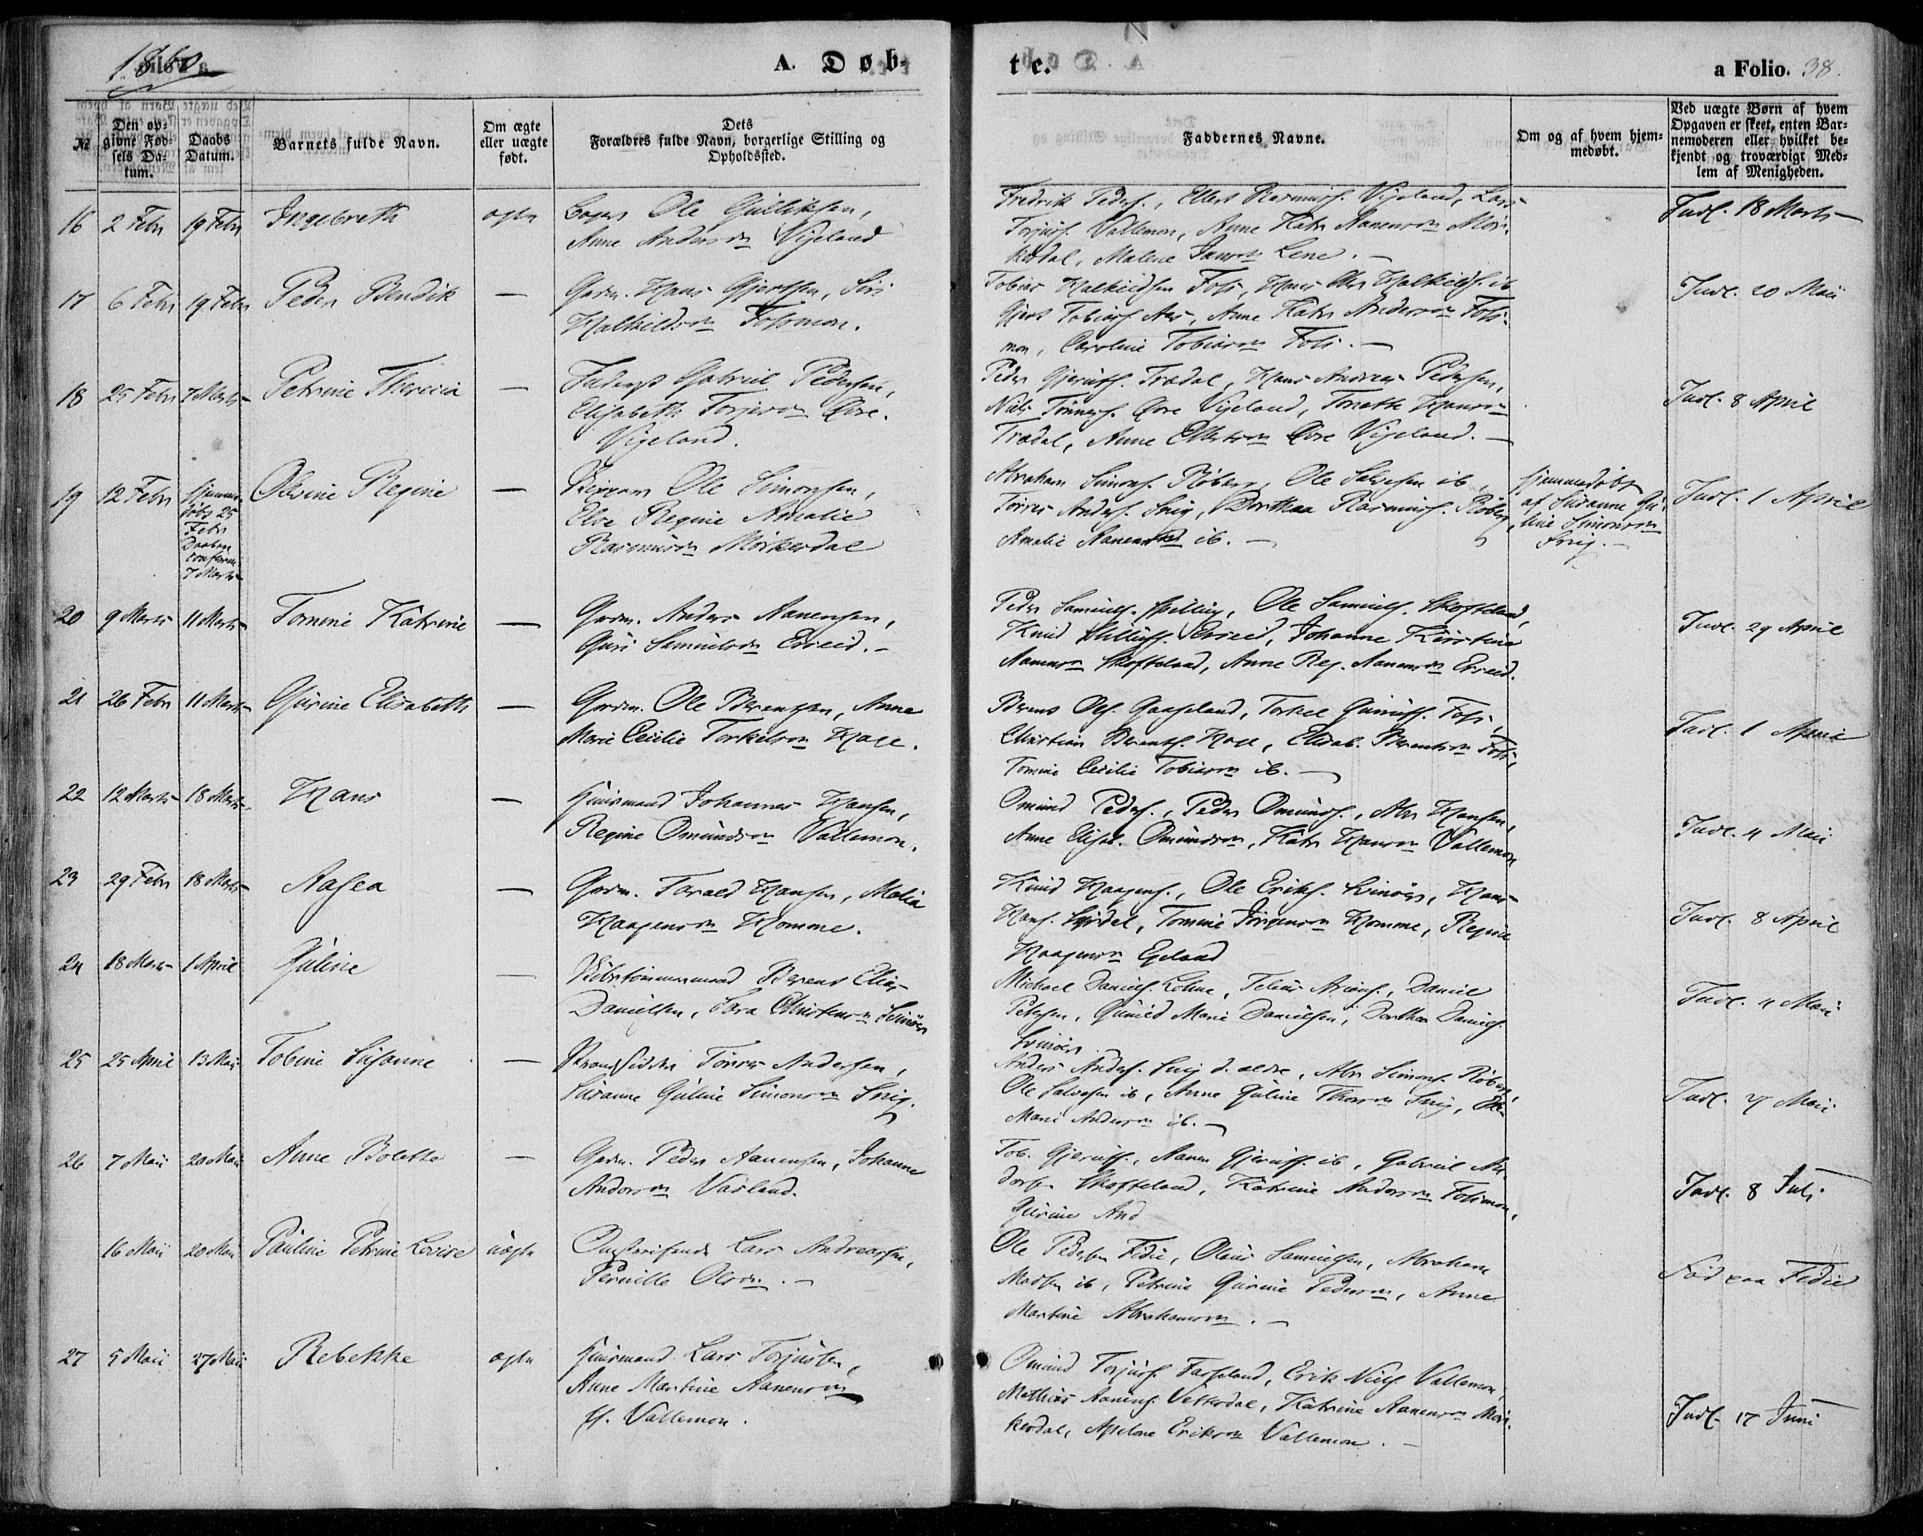 1860
A. Døb-
te.
a Folio. 38.
№
Den op-
givne Fød-
sels Da-
tum.
Daabs
Datum.
Barnets fulde Navn.
Om ægte
eller uægte
født.
Dets
Forældres fulde Navn, borgerlige Stilling og
Opholdssted.
Faddernes Navne.
Om og af hvem hjem-
medøbt.
Ved uægte Børn af hvem
Opgaven er skeet, enten Bar-
nemoderen eller hvilket be-
kjendt og troværdigt Med-
lem af Menigheden.
16 2 Febr 19 Febr Ingebreth ægte Ole Gulliksen,
Anne Andersdn Vigeland
Fredrik Peders., Ellert Rasmus. Vigeland, Lars
Torjus. Vallemon, Anne Kath Aanensdn Mør-
kedal, Malene Jansdn Lene. —
Indl. 18 Marts
17 6 Febr 19 Febr Peder Bendik — Gdm. Hans Gjertsen, Siri
Halkildsdn Fossmon.
Tobias Halkildsen Foss, Hans Halkilds. ib
Gjert Tobias. Aas, Anne Kath Andersdn Foss-
mon, Caroline Tobiasdn Foss. —
Indl. 20 Maii
18 25 Febr 7 Marts Petrine Therecia — Gabriel Pedersen,
Elisabeth Torjersdn Øvre
Vigeland.
Peder Gjeruls. Trædal, Hans Andreas Pedersen,
Niels Tønnes. Øvre Vigeland, Toneth Hansdn
Trædal, Anne Ellertsdn Øvre Vigeland. —
Indl. 8 April
19 12 Febr Hjemme-
døbt 25
Febr
Daaben
confirm.
7 Marts
Olevine Regine — Skipper Ole Simonsen,
Elve Regine Amalie
Rasmusdn Mørkerdal
Abraham Simons. Røberg, Ole Salvesen ib,
Tørres Anders. Snig, Dorthea Rasmus. Røberg,
Amalie Aanensdn ib. —
Hjemmedøbt
af Susanne Gu-
line Simonsdn
Snig. —
Indl. 1 April
20 9 Marts 11 Marts Tomine Kathrine — Gdm. Anders Aanensen,
Guri Samuelsdn Eereid. —
Peder Samuels. Spilling, Ole Samuels. Skofteland,
Knud Eereid, Johanne Kirstine
Aanensdn Skofteland, Anne Reg. Aanensdn Eereid.
Indl. 29 April
21 26 Febr 11 Marts Gurine Elisabeth — Gdm. Ole Berentsen, Anne
Marie Cecilie Torkelsdn Hage.
Berent Ols. Gaaseland, Torkel Gunuls. Foss,
Christian Berents. Hage, Elisab. Berentsdn Foss,
Tomine Cecilie Tobiasdn ib. —
Indl. 1 April
22 12 Marts 18 Marts Hans — Huusmand Johannes Hansen,
Regine Omundsdn Vallemon.
Omund Peders., Peder Omunds., Abr Hansen,
Anne Elisab. Omundsdn, Kath Hansdn Vallemon
Indl. 4 Maii
23 29 Febr 18 Marts Aasea — Gdm. Torald Hansen, Malia
Haagensdn Homme.
Knud Haagens., Ole Eriks. Svinør, Hans
Hans. Syrdal, Tomine Jørgensdn Homme, Regine
Haagensdn Egeland
Indl. 8 April
24 18 Marts 1 April Guline — Skibstømmermand Berent Elias
Danielsen, Tora Christensdn Svinør
Michael Daniels. Lohne, Daniel
Petersen, Gunild Marie Danielsen, Dorthea Daniels.
Svinør.
Indl. 4 Maii
25 25 April 13 Maii Tobine Susanne — Strandsidder Tørres Andersen,
Susanne Guline Simonsdn Snig.
Anders Anders. Snig d. ældre, Abr Simons. Røberg,
Ole Salvesen ib, Anne Guline Thorsdn Snig,
Marie Andersdn ib. —
Indl. 27 Maii
26 7 Maii 20 Maii Anne Bolette — Gdm. Peder Aanensen, Johanne
Andersdn Vasland.
Tob. Gjeruls., Aanen Gjeruls. ib, Gabriel An-
dersen Skofteland, Kathrine Andersdn Fossmon,
Gurine And
Indl. 8 Juli
16 Maii 20 Maii Pauline Petrine Lovise uægte Omstreifende Lars Andreassen,
Pernille Olsdn. —
Ole Pedersen Fidie, Olaus Samuelsen, Abraham
Madsen ib, Petrine Gurine Pedersdn, Anne
Martine Abrahamsdn. —
Fød paa Fidie
27 5 Maii 27 Maii Rebekke ægte Huusmand Lars Torjusen,
Anne Martine Aanensdn
Vallemon.
Omund Torjus. Faseland, Erik Niels. Vallemon,
Mathias Aanens. Vatkedal, Kathrine Aanensdn Mør-
kedal, Aselene Eriksdn Vallemon. —
Indl. 17 Juni